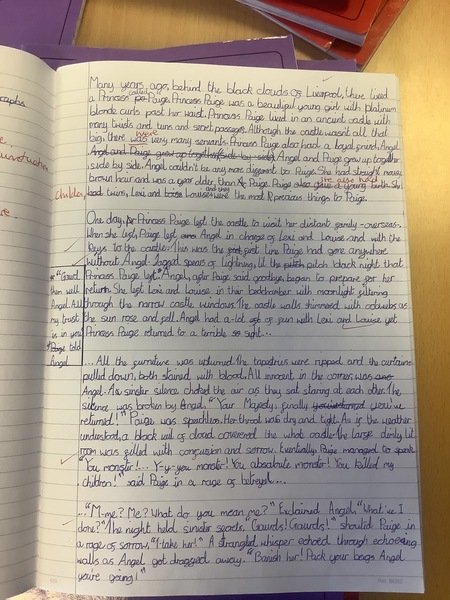 Many years ago, behind the black clouds of Liverpool, there lived
a Princess called Paige. Princess Paige was a beautiful young girl with platinum
blonde curls past her waist. Princess Paige lived in an ancient castle with
many twists and turns and secret passages. Although the castle wasn't all that
big, there were very many servants. Princess Paige also had a loyal friend, Angel.
Angel and Paige grew up together side by side. Angel and Paige grew up together
side by side. Angel couldn't be any more different to Paige. She had straight mousy
brown hair and was a year older than Paige. Paige also gave young birth. She
had twins, Lexi and Louise and they were the most precious things to Paige.
One day, Princess Paige left the castle to visit her distant family - overseas.
When she left, Paige left Angel in charge of Lexi and Louise and with the
Keys to the castle. This was the first time Paige had gone anywhere
without Angel. Jagged spears of lightning, lit the pitch black night that
Princess Paige left. * Angel, after Paige said goodbye, began to prepare for her
return. She left Lexi and Louise in their bedchamber with moonlight filtering
through the narrow castle windows. The castle walls shimmered with cobwebs as
the sun rose and fell. Angel had a-lot of fun with Lexi and Louise yet
Princess Paige returned to a terrible sight...
* "Guard
them well
Angel. All
my trust
is in you"
Paige told
Angel
...All the furniture was upturned. The tapestries were ripped and the curtains
pulled down, both stained with blood. All innocent in the corner, was
Angel. A sinister silence choked the air as they sat staring at each other. The
silence was broken by Angel. "Your Majesty, finally you've
returned!" Paige was speechless. Her throat was dry and tight. As if the weather
understood, a black veil of cloud covered the whole castle. The large dimly lit
room was filled with confusion and sorrow. Eventually Paige managed to speak
"You monster!... Y-y-you monster! You absolute monster! You killed my
children!" said Paige in a rage of betrayal...
..."M-me? Me? What do you mean me?" Exclaimed Angel, "What've I
done?" The night held sinister secrets. "Guards! Guards!" shouted Paige in
a rage of sorrow. "Take her!" A strangled whisper echoed through echoeing
walls as Angel got dragged away. "Banish her! Pack your bags Angel
you're going!"